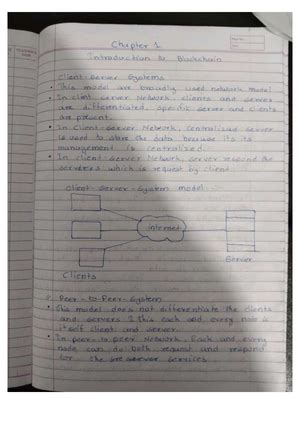 Chapter 1
Introduction to Blockchain
Client-Server Systems
• This model are broadly used network model
• In client server Network, clients and server
are differentiated, specific server and clients
are present.
• In Client-Server Network, Centralized server
is used to store the data because its
management is centralized.
• In client-server Network, server respond the
services which is request by client
Client-Server-System model.
Internet
Server
Clients
Peer-to-Peer-System
• This model does not differentiate the clients
and servers each and every node is
itself client and server.
• In peer-to peer Network, Each and every
node can do both request and respond
for the services